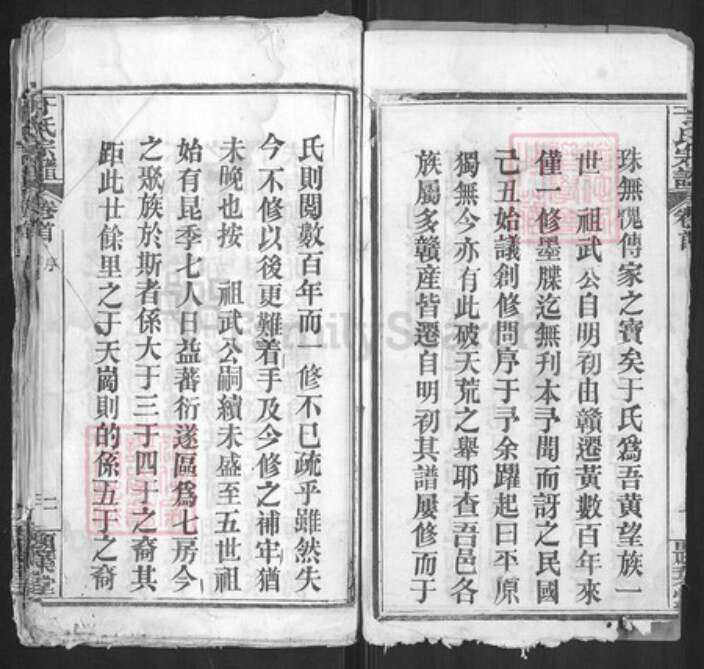 珠無愧傳家之寶矣于氏爲吾黄望族一
世 祖武公自明初由贛遷黃數百年來
僅一修墨牒迄無刊本予聞而訝之民國
己丑始議創修問序于予余躍起曰平原
獨無今亦有此破天荒之舉耶查吾邑各
族屬多贛産皆遷自明初其譜屢修而于
氏則閱數百年而 修不已疏乎雖然失
今不修以後更難着手及今修之補牢猶
未晚也按 祖武公嗣續未盛至五世祖
始有昆季七人日益蕃衍遂區爲七房今
之聚族於斯者係大于三于四于之裔其
距此廿餘里之于天崗則的係五于之裔
于氏宗譜
卷首
序
二